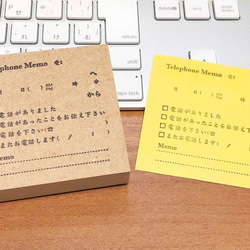 Telephone Memo ☎:
へ
月 日( ) AM PM 時 分
から
電話がありました
電話があったことをお伝え下
電話を下さい(☎
またお電話します( / )
Memo
Telephone Memo ☎:
月 日( ) AM PM 時
□ 電話がありました
□ 電話があったことをお伝え下
□ 電話を下さい(☎
□ またお電話します( /
Memo